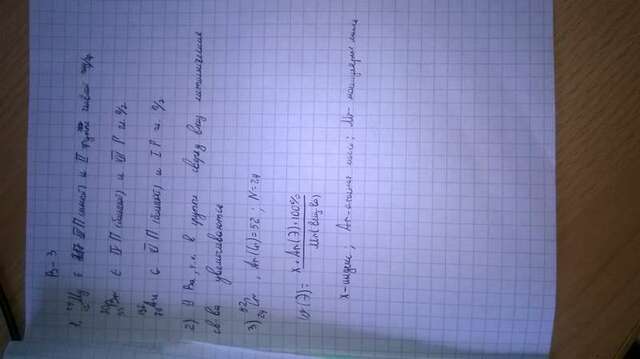 В-3
1. Mg ∈ III П (малой) и II группе главн п/гр
Br ∈ IV П (большой) и VII Г гл. п/г
Au ∈ VI П (большой) и I Г п/г
2) У Ba, т.к. в группе сверху вниз металические
св-ва увеличиваются
3) ⁵²₂₄Cr , Ar(Cr)=52 ; N=24
W(Э)= x·Ar(Э)·100%
Mr(вещ-ва)
x-индекс ; Ar-атомная масса ; Mr- молекулярная масса